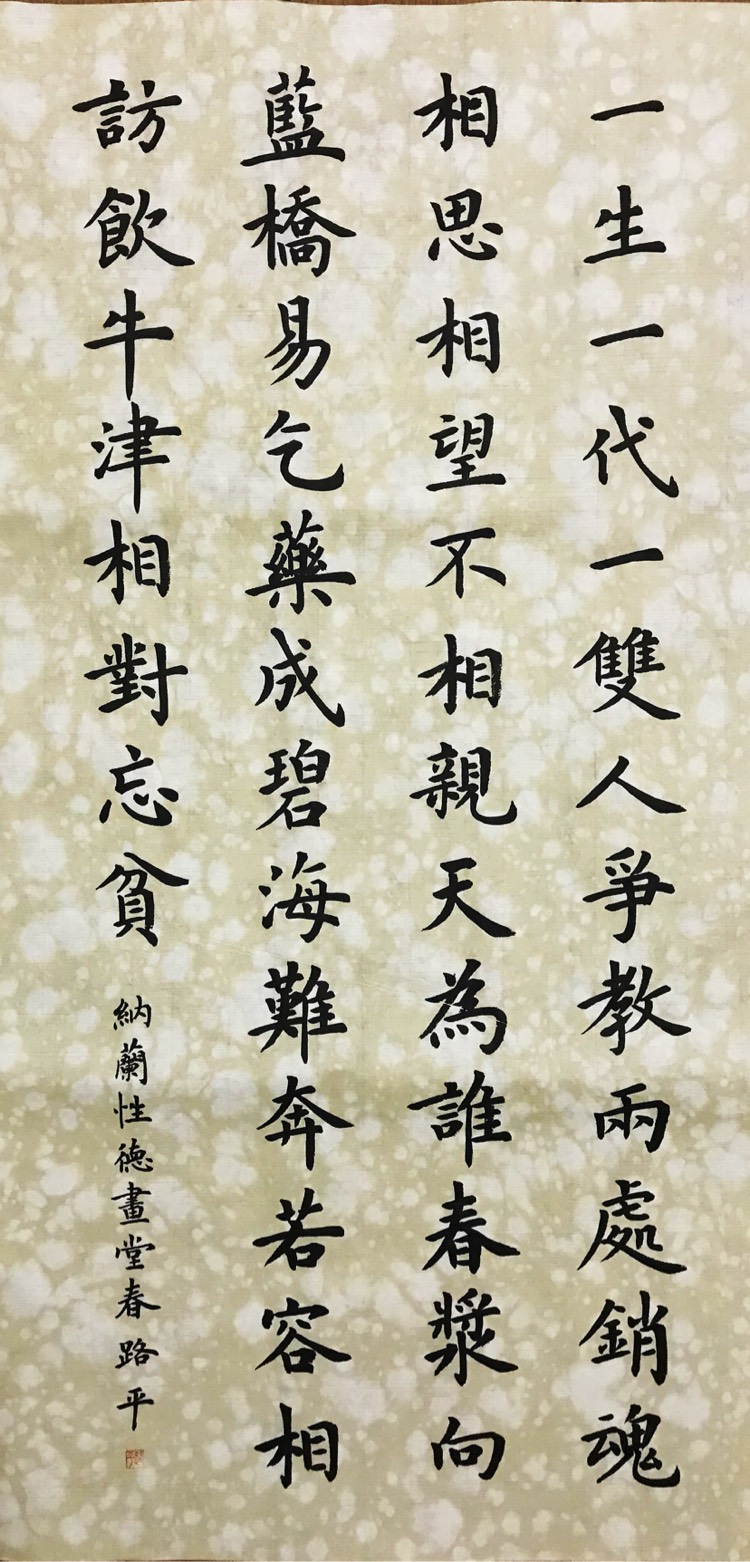 一生一代一雙人爭教兩處銷魂
相思相望不相親天為誰春漿向
藍橋易乞藥成碧海難奔若容相
訪飲牛津相對忘貧
納蘭性德畫堂春路平